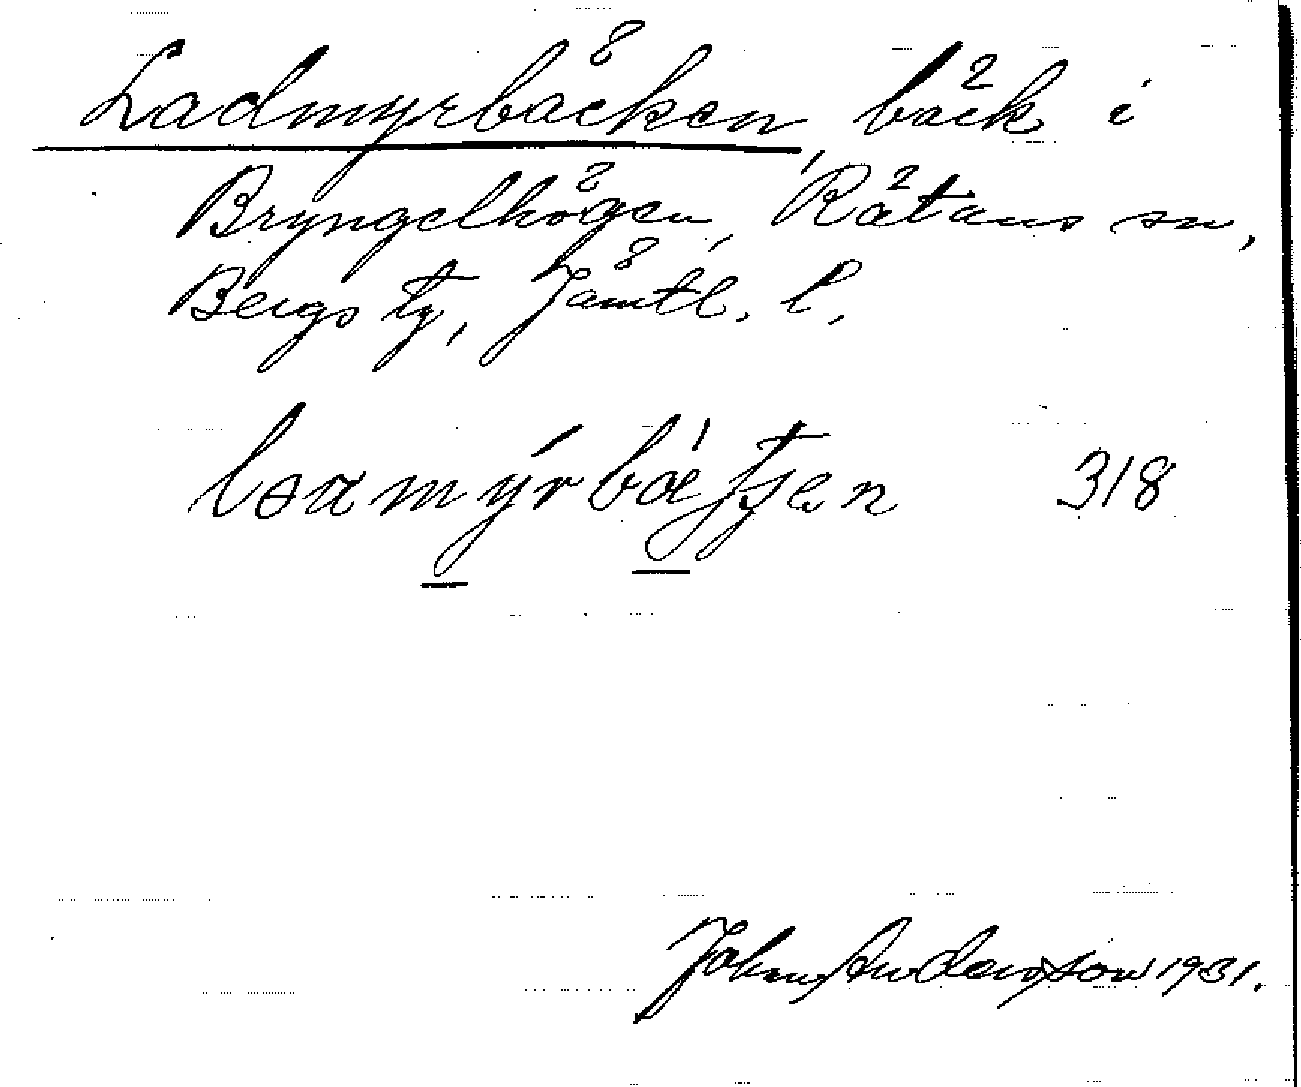 Ladmyrbäcken, bäck i
Bryngelhögen, Rätans sn,
Bergs tg, Jämtl. l.
318
John Andersson 1931.